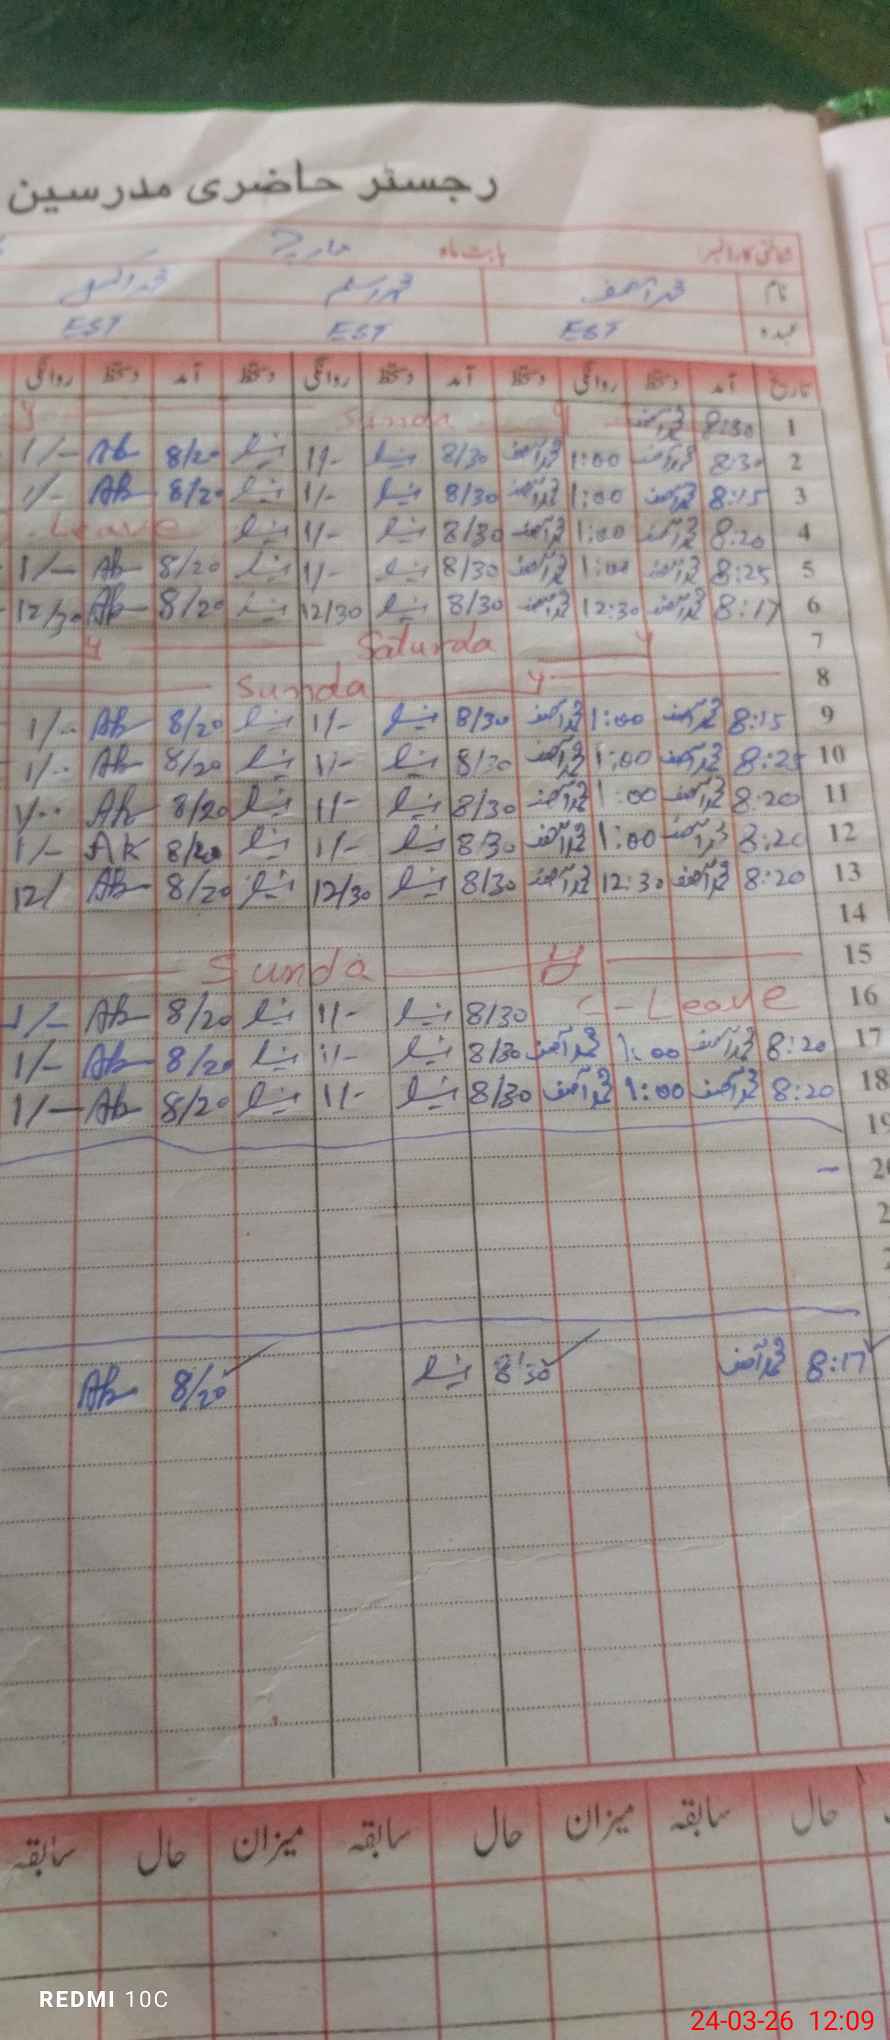 رجسٹر حاضری مدرسین
شناختی کارڈ نمبر بابت ماہ مارچ
نام محمد آصف محمد اسلم محمد
عہدہ EST EST EST
تاریخ آمد دستخط روانگی دستخط آمد دستخط روانگی دستخط آمد دستخط روانگی
1 8:30 محمد آصف Sunda y
2 8:30 محمد آصف 1:00 محمد آصف 8/30 1/- 8/20 Ab 1/-
3 8:15 محمد آصف 1:00 محمد آصف 8/30 1/- 8/20 Ab 1/-
4 8:20 محمد آصف 1:00 محمد آصف 8/30 1/- Leave
5 8:25 محمد آصف 1:00 محمد آصف 8/30 1/- 8/20 Ab 1/-
6 8:17 محمد آصف 12:30 محمد آصف 8/30 12/30 8/20 Ab 12/30
7 Saturda y
8 Sunda y
9 8:15 محمد آصف 1:00 محمد آصف 8/30 1/- 8/20 Ab 1/..
10 8:25 محمد آصف 1:00 محمد آصف 8/30 1/- 8/20 Ab 1/..
11 8:20 محمد آصف 1:00 محمد آصف 8/30 1/- 8/20 Ab 1/..
12 8:20 محمد آصف 1:00 محمد آصف 8/30 1/- 8/20 AK 1/-
13 8:20 محمد آصف 12:30 محمد آصف 8/30 12/30 8/20 Ab 12/
14
15 Sunda y
16 C-Leave 8/30 1/- 8/20 Ab 1/-
17 8:20 محمد آصف 1:00 محمد آصف 8/30 1/- 8/20 Ab 1/-
18 8:20 محمد آصف 1:00 محمد آصف 8/30 1/- 8/20 Ab 1/-
19
8:17 محمد آصف 8/30 8/20 Ab
حال سابقہ میزان حال سابقہ میزان حال سابقہ
REDMI 10C
24-03-26 12:09